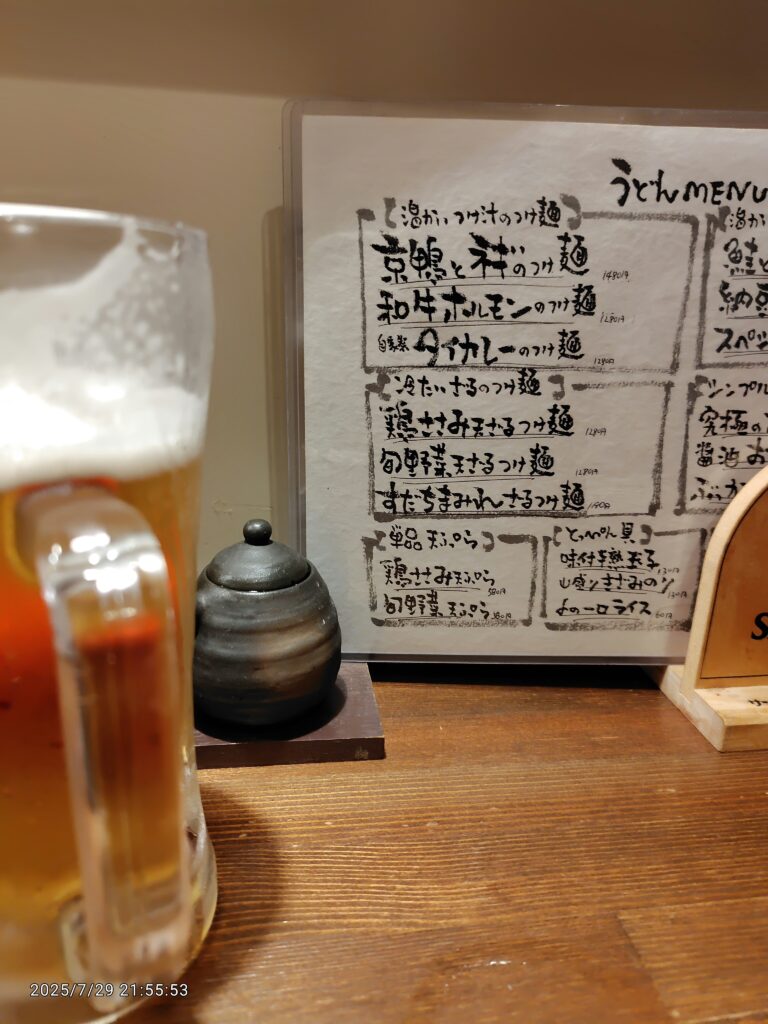 うどんMENU
【温かいつけ汁のつけ麺】
京鴨と ネギのつけ麺 1480円
和牛ホルモンのつけ麺 1280円
自家製 タイカレーのつけ麺 1280円
【冷たいざるのつけ麺】
鶏ささみ天ざるつけ麺 1280円
旬野菜天ざるつけ麺 1280円
すだちまみれざるつけ麺
【単品天ぷら】
鶏ささみ天ぷら 580円
旬野菜天ぷら 580円
【とっぺん具】
味付半熟玉子 130円
山盛りきざみのり 130円
〆の一口ライス
【温か
鮭と
納豆
スペシ
【シンプル
究極の
醤油 お
ぶっか
S
2025/7/29 21:55:53